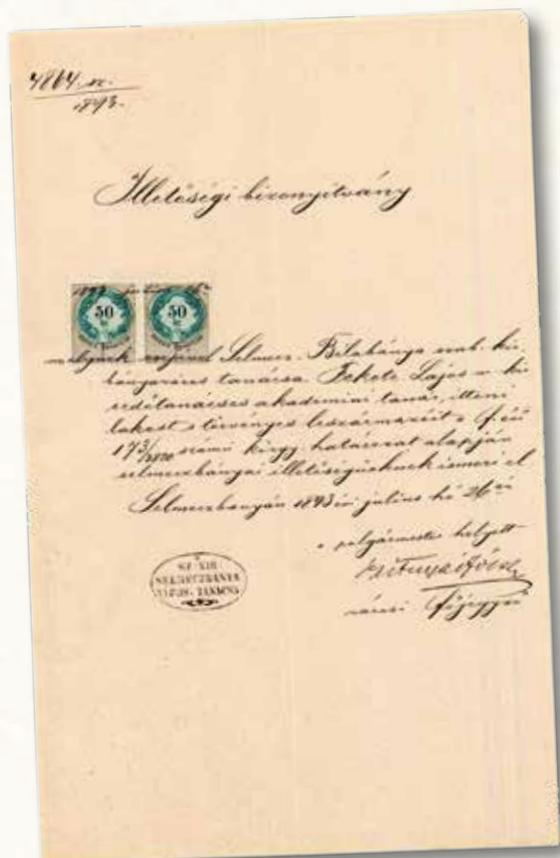 4864. sz.
1893.
Illetőségi bizonyítvány
1893 július 26
50 50
melynek erejénél Selmecz- Bélabánya szab. kir.
bányaváros tanácsa Fekete Lajos m. kir
akademiai tanár, itteni
lakost s törvényes leszármazóit a f. évi
173/ számú közgy. határozat alapján
selmeczbányai illetőségűeknek ismeri el
Selmeczbányán 1893 évi július hó 26 án
a polgármester helyett
városi főjegyző
SZ. KIR
SELMECZBÁNYA
VÁROS TANÁCSA